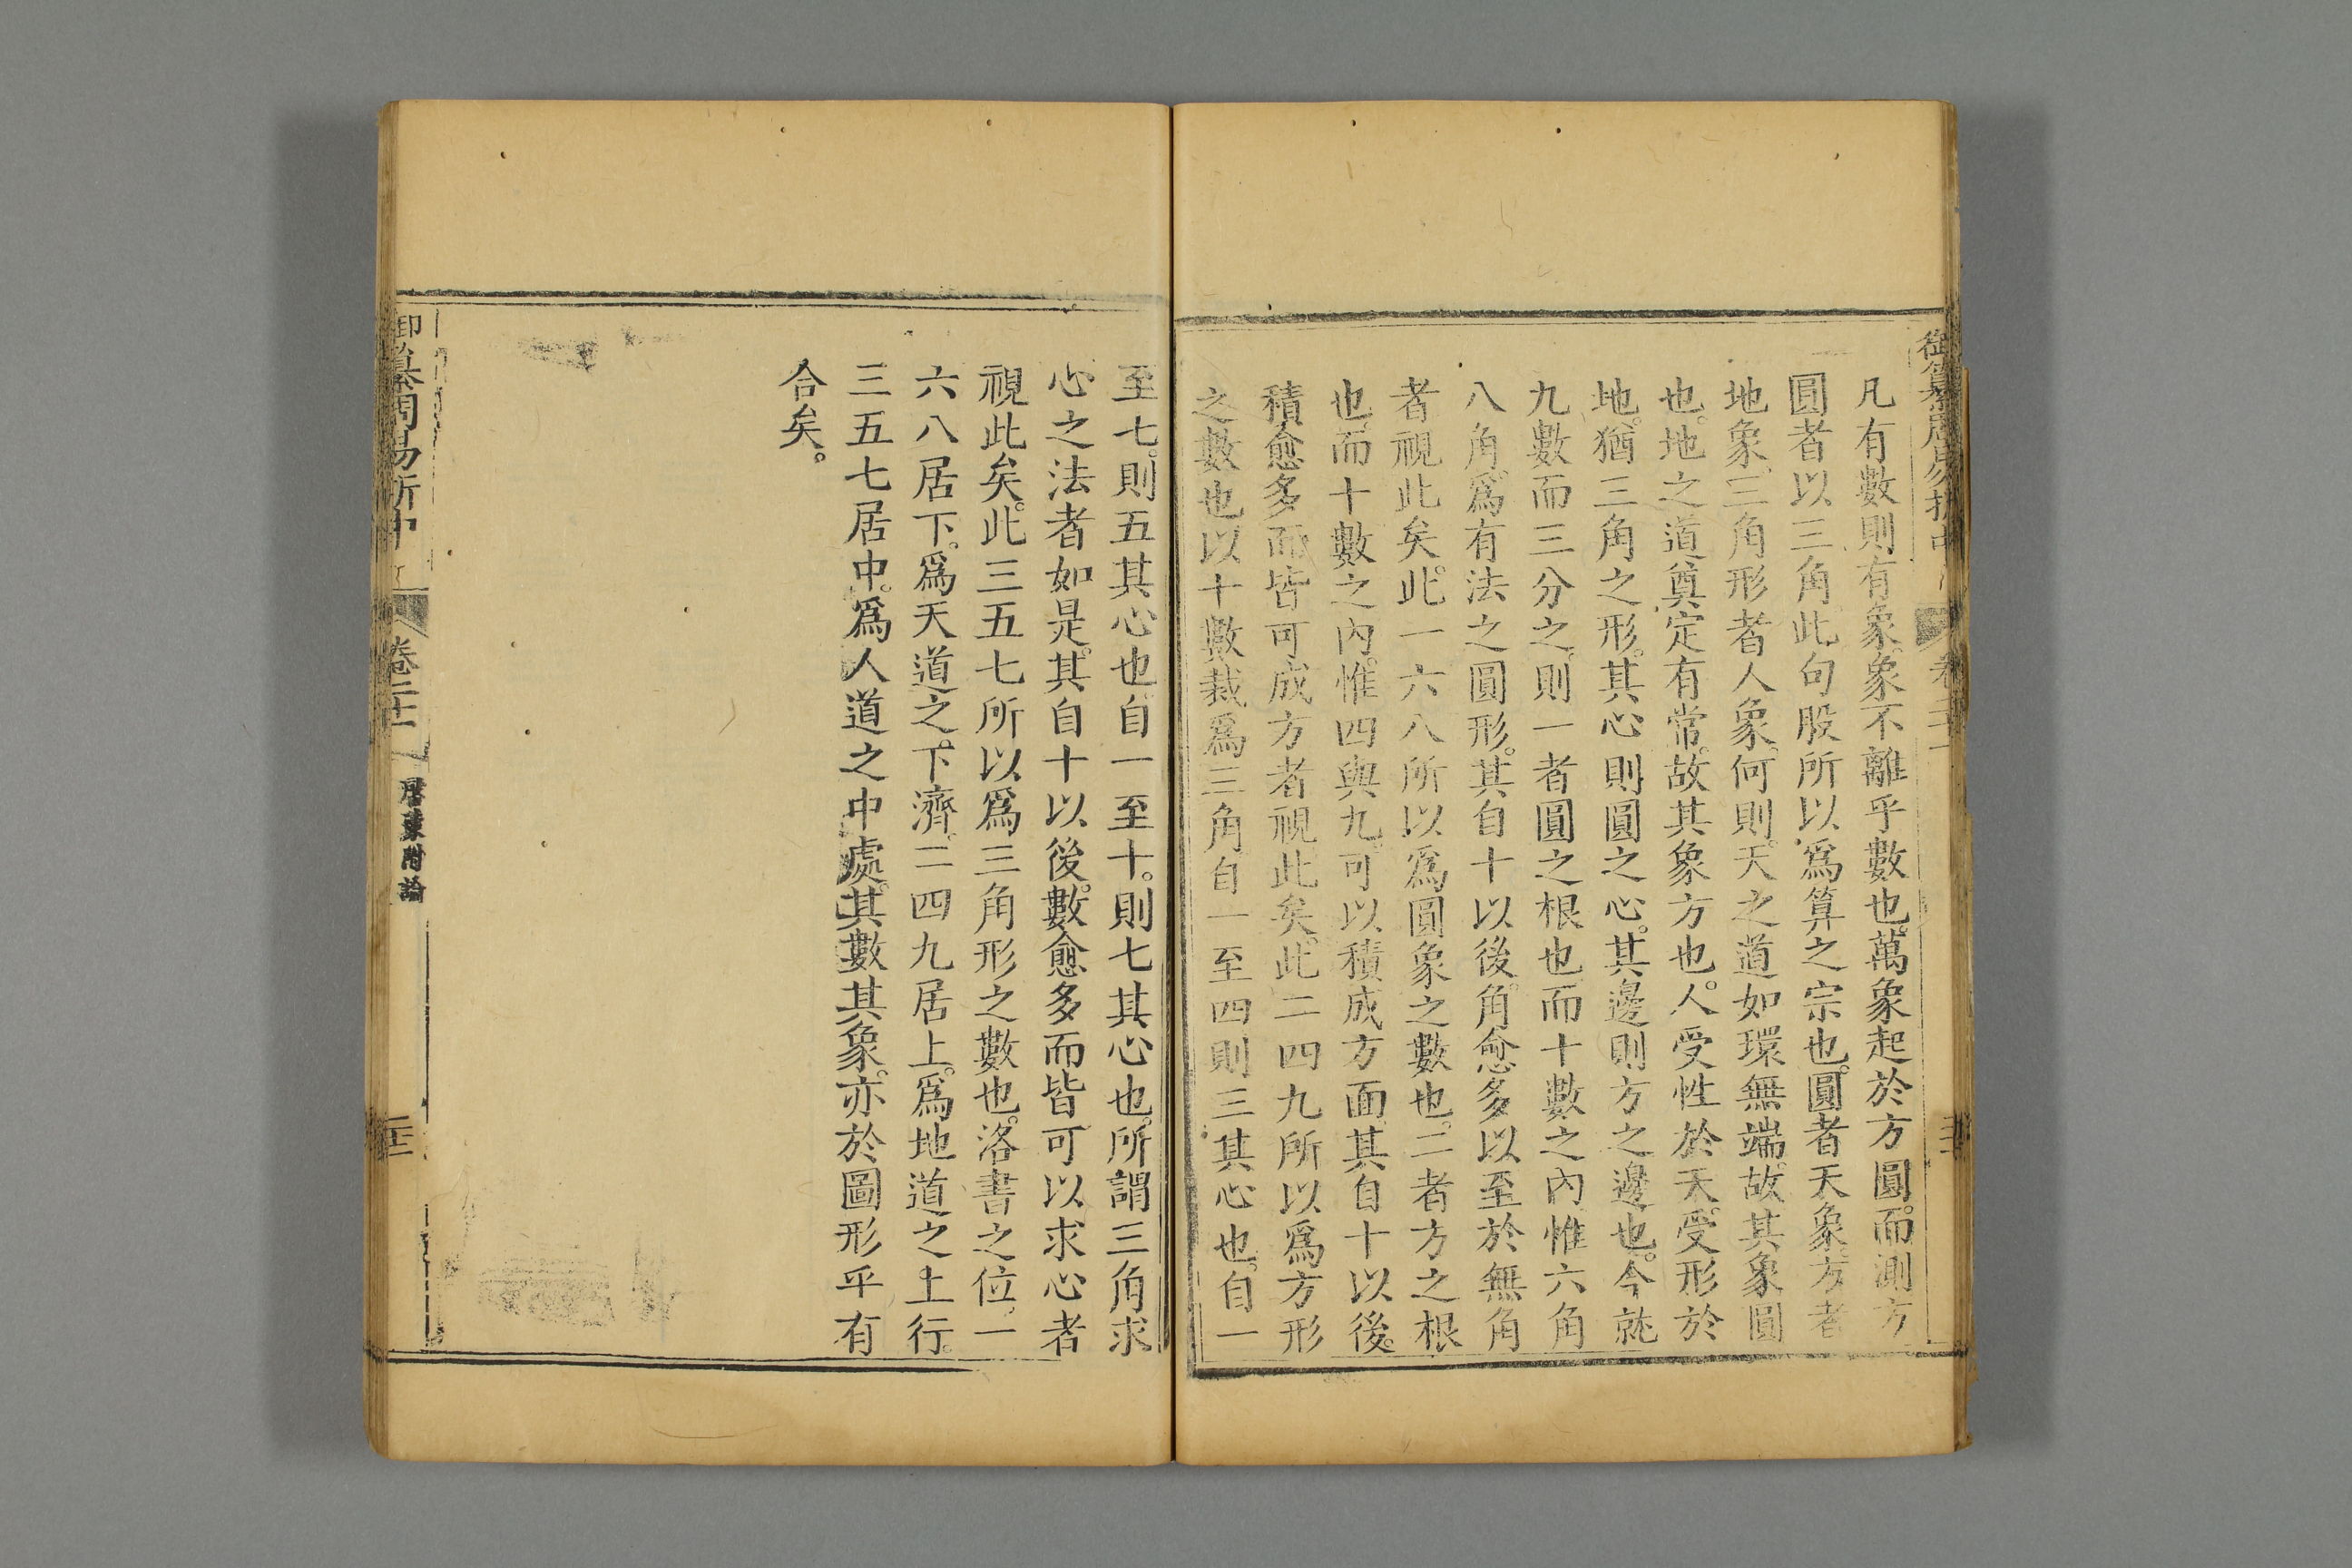 御纂周易折中
卷二十一
凡有數則有象。象不離乎數也。萬象起於方圓。而測方
圓者以三角。此句股所以爲算之宗也。圓者天象。方者
地象。三角形者人象。何則。天之道如環無端。故其象圓
也。地之道奠定有常。故其象方也。人受性於天。受形於
地。猶三角之形。其心則圓之心。其邊則方之邊也。今就
九數而三分之。則一者圓之根也。而十數之內。惟六角
八角。爲有法之圓形。其自十以後。角愈多以至於無角
者視此矣。此一六八所以爲圓象之數也。二者方之根
也。而十數之內。惟四與九。可以積成方面。其自十以後。
積愈多而皆可成方者視此矣。此二四九所以爲方形
之數也以十數裁爲三角自一至四則三其心也。自一
至七。則五其心也自一至十。則七其心也。所謂三角求
心之法者如是。其自十以後。數愈多而皆可以求心者
視此矣。此三五七所以爲三角形之數也。洛書之位。一
六八居下。爲天道之。下濟。二四九居上。爲地道之上行。
三五七居中。爲人道之中處。其數其象。亦於圖形平有
合矣。
御纂周易折中
卷二十一
啓蒙附論